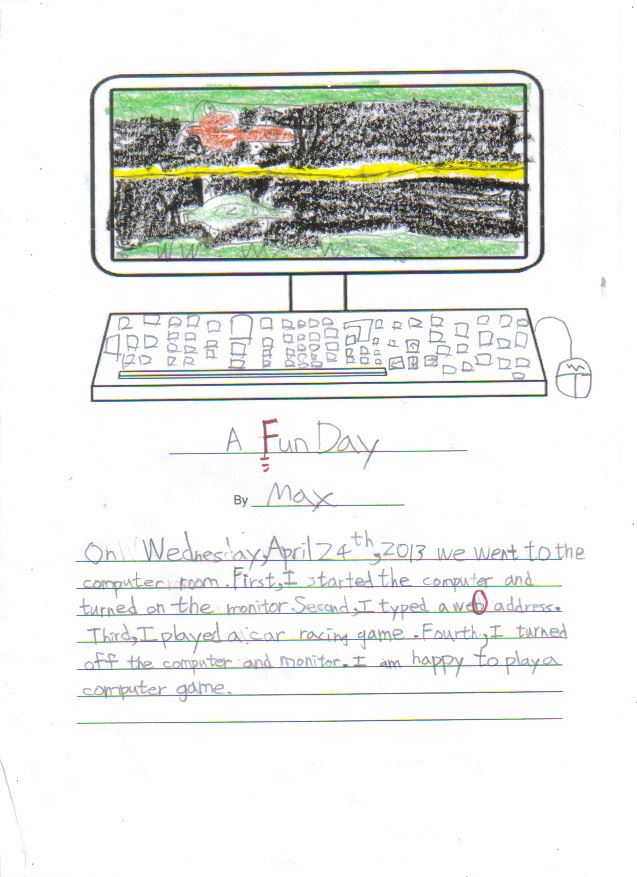 A Fun Day
By Max
On Wednesday, April 24th, 2013 we went to the
computer room. First, I started the computer and
turned on the monitor. Second, I typed a web address.
Third, I played a car racing game. Fourth, I turned
off the computer and monitor. I am happy to play a
computer game.